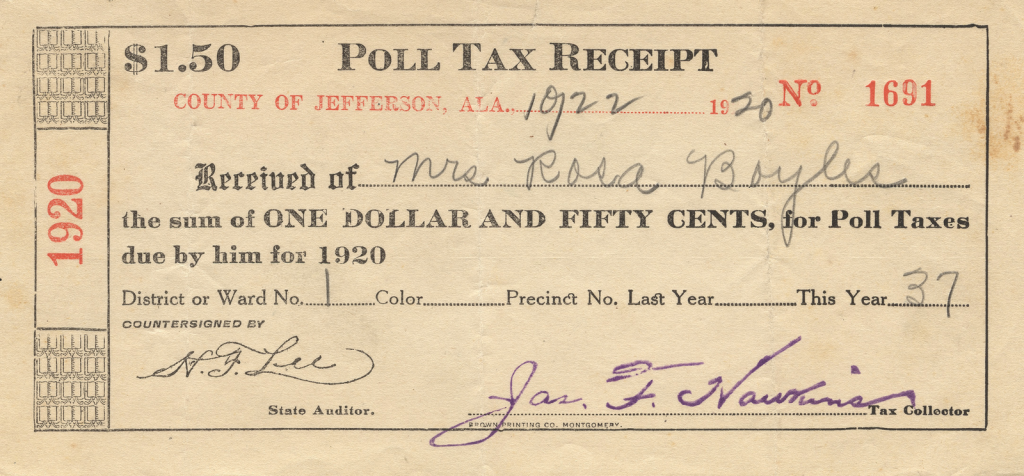 $1.50 POLL TAX RECEIPT
COUNTY OF JEFFERSON, ALA. 10/22 1920 No 1691
1920
Received of Mrs Rosa Boyles
the sum of ONE DOLLAR AND FIFTY CENTS, for Poll Taxes
due by him for 1920
District or Ward No. 1 Color Precinct No. Last Year This Year 37
COUNTERSIGNED BY
H. F. Lee
State Auditor.
Jas. F. Hawkins Tax Collector
BROWN PRINTING CO. MONTGOMERY.